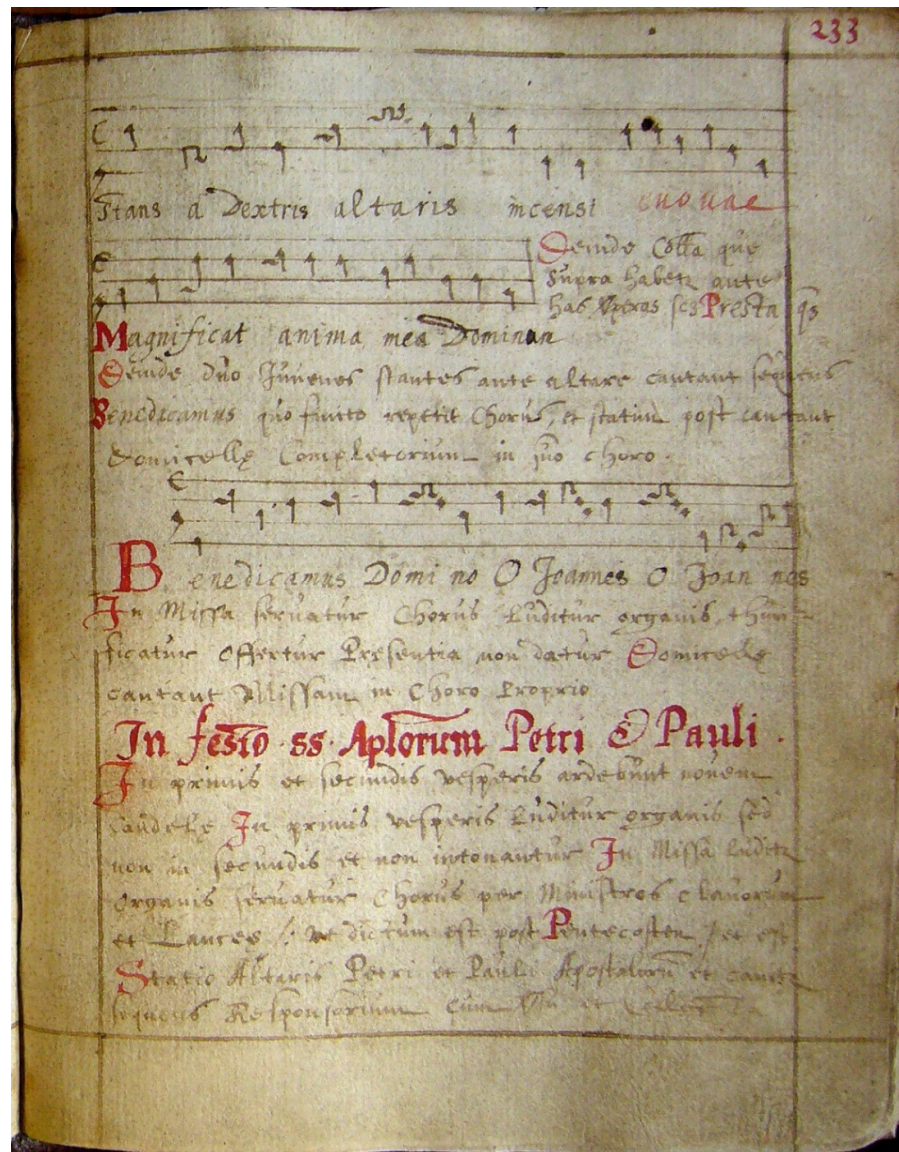 233
Stans a Dextris altaris incensi euouae
Deinde Collā que
supra habetr ante
has Vesperas scs Presta qs
Magnificat anima mea Dominum
Deinde duo Juvenes stantes ante altare cantant sequens
Benedicamus quo finito repetit Chorus, et statim post cantant
Domicellę Completorium in suo choro.
Benedicamus Domi no O Joannes O Joan nes
In Missa servatur Chorus Luditur organis, thuri
ficatur offertur Presentia non datur Domicellę
cantant Missam in Choro Proprio
In festo ss Aplorum Petri & Pauli.
In primis et secundis vesperis ardebunt novem
candelę In primis vesperis Luditur organis sed
non in secundis et non intonantur In Missa luditr
organis servatur Chorus per Ministros clavorum
et Lances /: ut dictum est post Pentecosten :/ et est
Statio Altaris Petri et Pauli Apostolorū et canitr
sequens Responsorium cum et